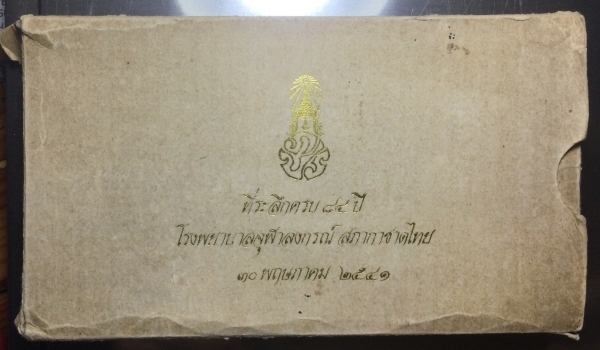 ที่ระลึกครบ ๘๔ ปี
โรงพยาบาลจุฬาลงกรณ์ สภากาชาดไทย
๓๐ พฤษภาคม ๒๕๔๑